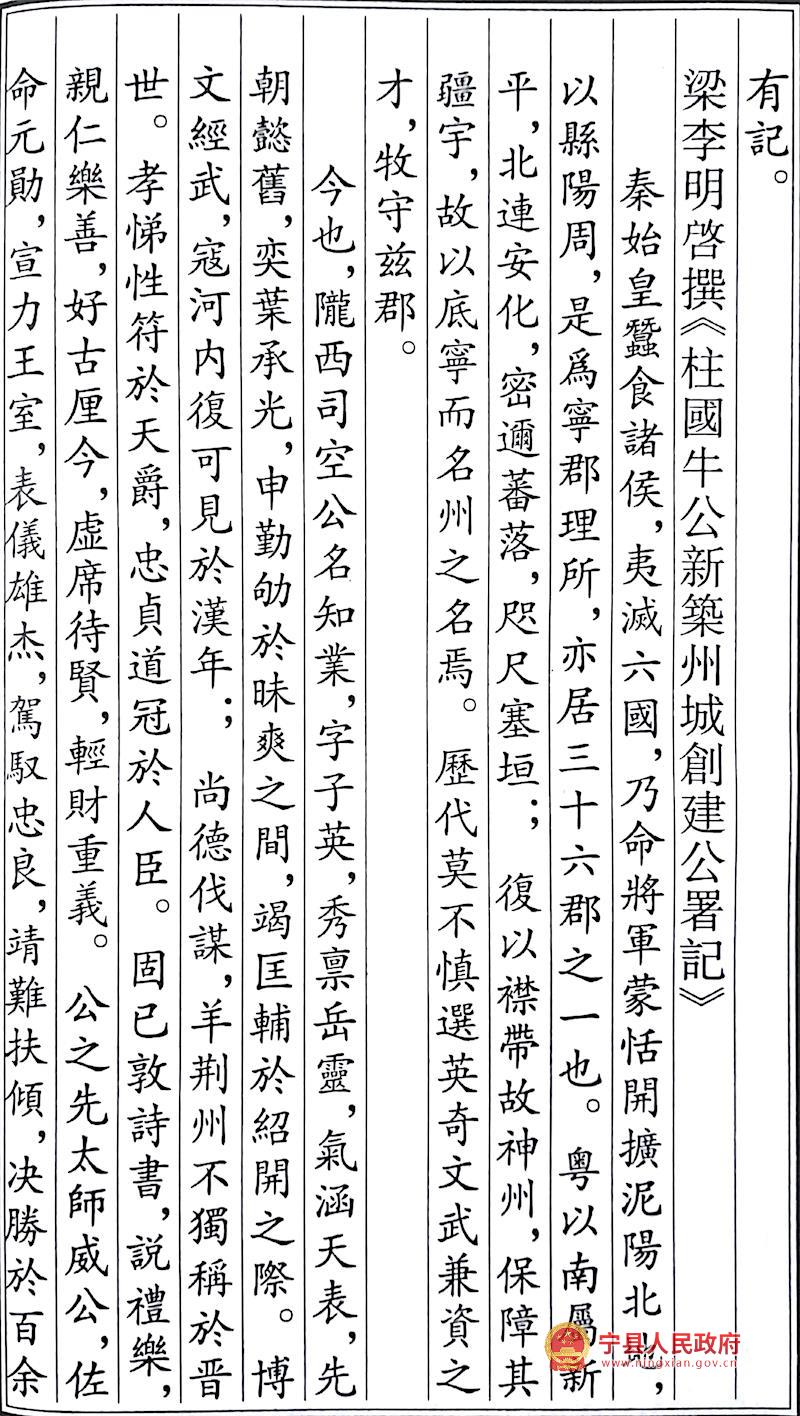 有記。
梁李明啓撰《柱國牛公新築州城創建公署記》
秦始皇蠶食諸侯，夷滅六國，乃命將軍蒙恬開擴泥陽北地，
以縣陽周，是爲寧郡理所，亦居三十六郡之一也。粵以南屬新
平，北連安化，密邇蕃落，咫尺塞垣；復以襟帶故神州，保障其
疆宇，故以底寧而名州之名焉。歷代莫不慎選英奇文武兼資之
才，牧守兹郡。
今也，隴西司空公名知業，字子英，秀禀岳靈，氣涵天表，先
朝懿舊，奕葉承光，申勤劬於昧爽之間，竭匡輔於紹開之際。博
文經武，寇河内復可見於漢年；尚德伐謀，羊荆州不獨稱於晋
世。孝悌性符於天爵，忠貞道冠於人臣。固已敦詩書，説禮樂，
親仁樂善，好古厘今，虚席待賢，輕財重義。公之先太師威公，佐
命元勛，宣力王室，表儀雄杰，駕馭忠良，靖難扶傾，决勝於百余
宁县人民政府
www.ningxian.gov.cn